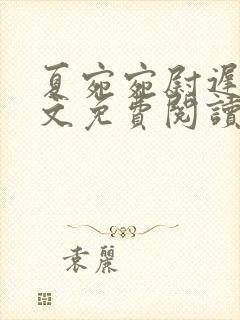 夏宛宛尉遲
文免費閱讀
袁麗